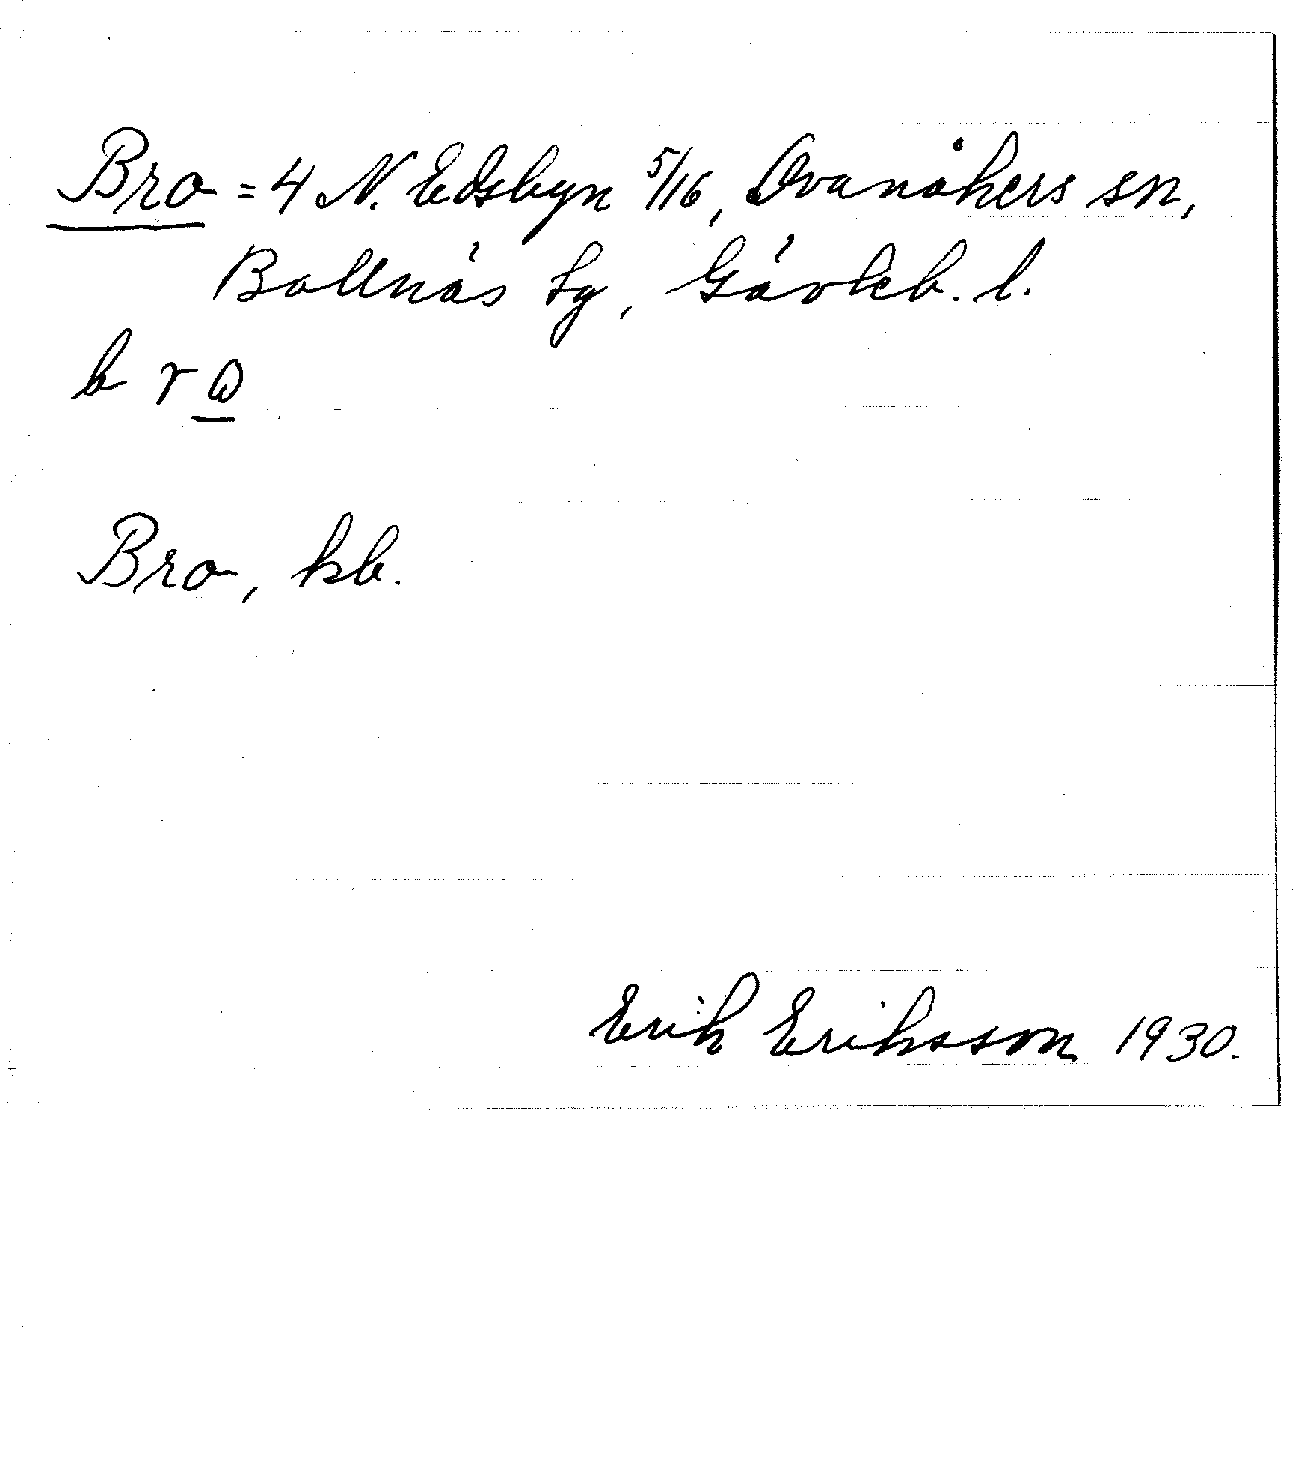 Bro = 4 N. Edsbyn 5/16, Ovanåkers sn,
Bollnäs tg, Gävleb. l.
b r ω
Bro, kb.
Erik Eriksson 1930.